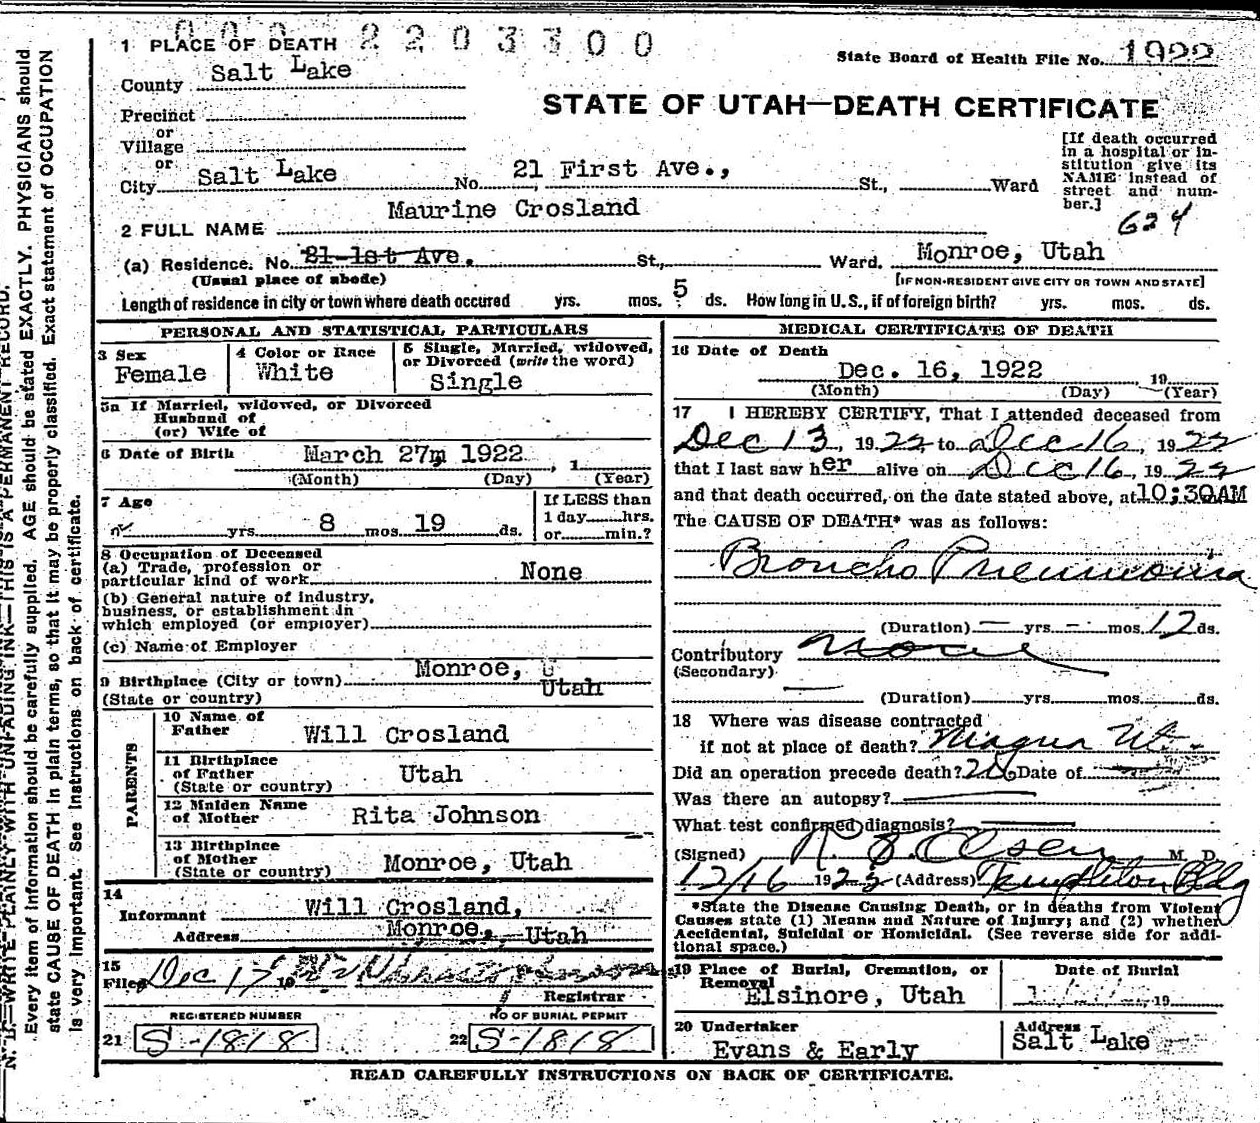 2 2 0 3 3 0 0
1 PLACE OF DEATH
State Board of Health File No. 1922
County Salt Lake
STATE OF UTAH—DEATH CERTIFICATE
Precinct
or
Village
or
City Salt Lake No. 21 First Ave., St., Ward
[If death occurred
in a hospital or in-
stitution give its
NAME instead of
street and num-
ber.]
624
2 FULL NAME Maurine Crosland
(a) Residence. No. 21-1st Ave. St., Ward. Monroe, Utah
(Usual place of abode) [IF NON-RESIDENT GIVE CITY OR TOWN AND STATE]
Length of residence in city or town where death occured yrs. mos. 5 ds. How long in U. S., if of foreign birth? yrs. mos. ds.
PERSONAL AND STATISTICAL PARTICULARS
3 Sex
Female
4 Color or Race
White
5 Single, Married, widowed,
or Divorced (write the word)
Single
5a If Married, widowed, or Divorced
Husband of
(or) Wife of
6 Date of Birth March 27m 1922, 1
(Month) (Day) (Year)
7 Age
yrs. 8 mos. 19 ds.
If LESS than
1 day hrs.
or min.?
8 Occupation of Deceased
(a) Trade, profession or
particular kind of work None
(b) General nature of industry,
business, or establishment in
which employed (or employer)
(c) Name of Employer
9 Birthplace (City or town) Monroe, U
(State or country) Utah
PARENTS
10 Name of
Father Will Crosland
11 Birthplace
of Father Utah
(State or country)
12 Maiden Name
of Mother Rita Johnson
13 Birthplace
of Mother Monroe, Utah
(State or country)
14
Informant Will Crosland,
Address Monroe, Utah
15
Filed Dec 17 19
Registrar
REGISTERED NUMBER
21 S-1818
NO OF BURIAL PERMIT
22 S-1818
MEDICAL CERTIFICATE OF DEATH
16 Date of Death
Dec. 16, 1922 19
(Month) (Day) (Year)
17 I HEREBY CERTIFY, That I attended deceased from
Dec 13, 1922, to Dec 16, 1922
that I last saw her alive on Dec 16, 1922
and that death occurred, on the date stated above, at 10:30AM
The CAUSE OF DEATH* was as follows:
Broncho Pneumonia
(Duration) — yrs. — mos. 12 ds.
Contributory None
(Secondary)
(Duration) yrs. mos. ds.
18 Where was disease contracted
if not at place of death? Magna Ut.
Did an operation precede death? No Date of
Was there an autopsy?
What test confirmed diagnosis?
(Signed) Olsen M. D.
12/16 1922 (Address) Templeton Bldg
*State the Disease Causing Death, or in deaths from Violent
Causes state (1) Means and Nature of Injury; and (2) whether
Accidental, Suicidal or Homicidal. (See reverse side for addi-
tional space.)
19 Place of Burial, Cremation, or
Removal
Elsinore, Utah
Date of Burial
19
20 Undertaker
Evans & Early
Address
Salt Lake
READ CAREFULLY INSTRUCTIONS ON BACK OF CERTIFICATE.
N. B.—WRITE PLAINLY WITH UNFADING INK—THIS IS A PERMANENT RECORD.
Every item of information should be carefully supplied. AGE should be stated EXACTLY. PHYSICIANS should
state CAUSE OF DEATH in plain terms, so that it may be properly classified. Exact statement of OCCUPATION
is very important. See instructions on back of certificate.